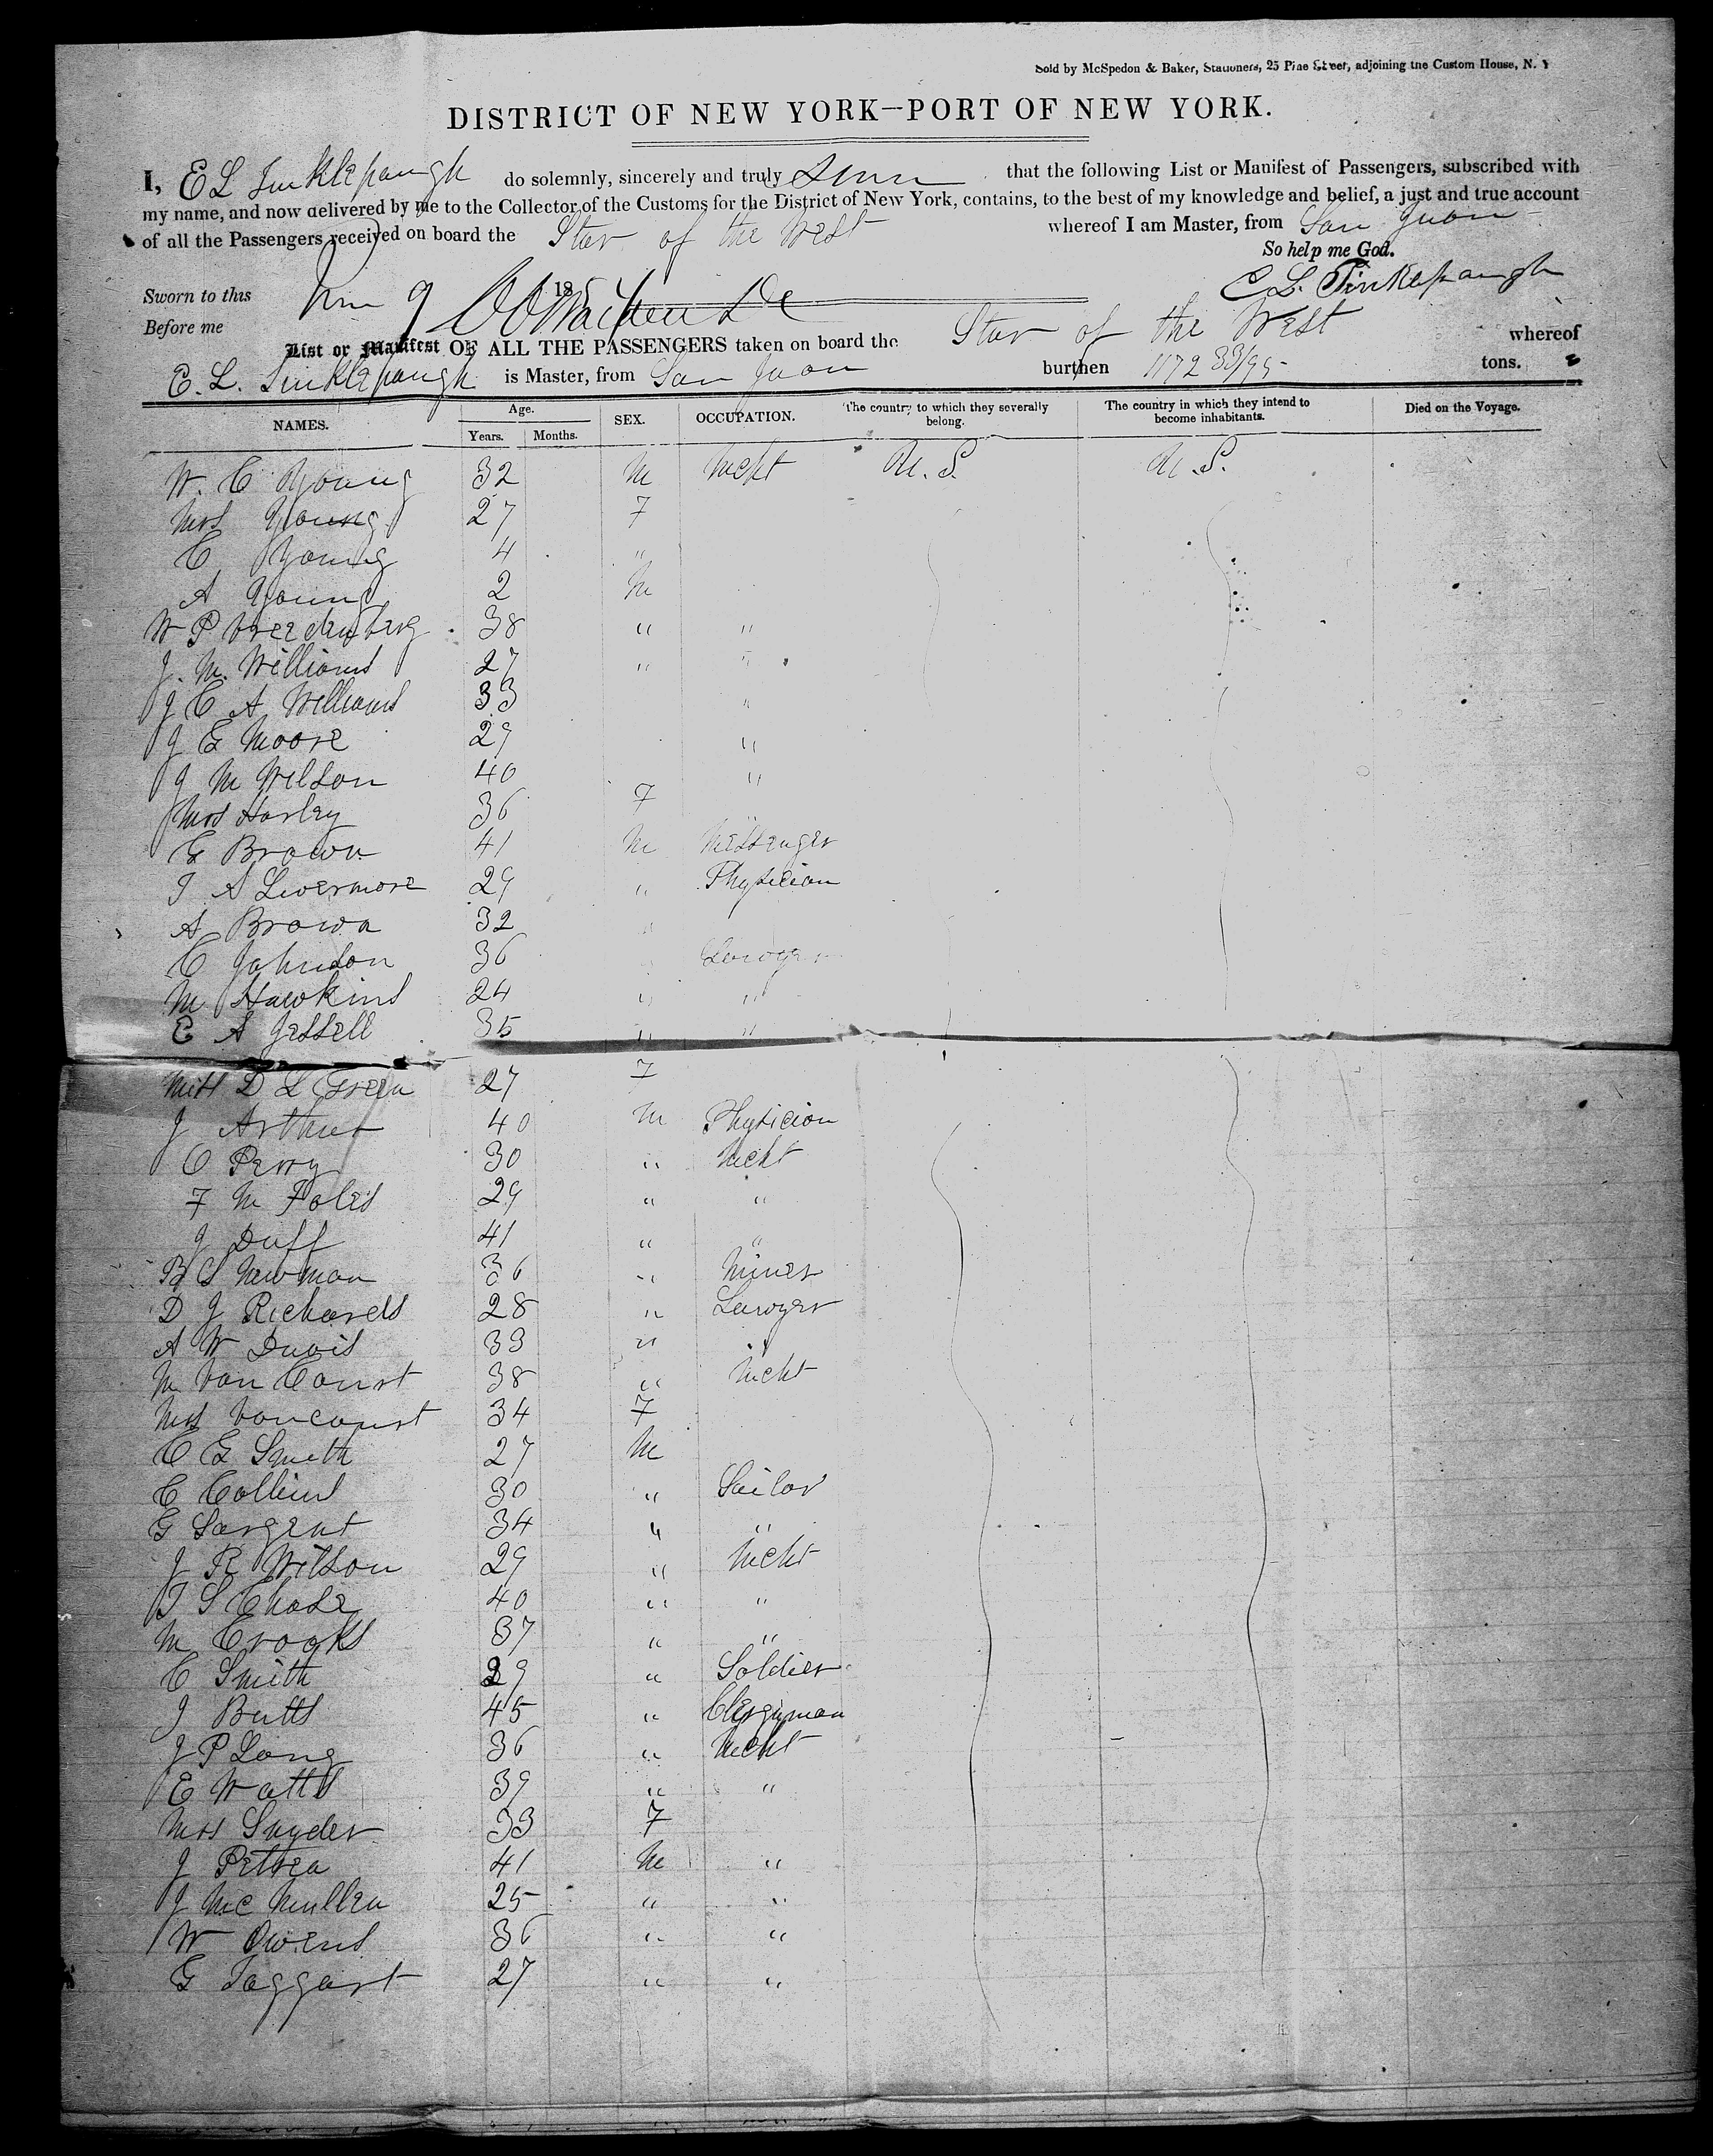 Sold by McSpedon & Baker, Stationers, 25 Pine Street, adjoining the Custom House, N. Y
DISTRICT OF NEW YORK—PORT OF NEW YORK.
I, E L Tinklepaugh do solemnly, sincerely and truly that the following List or Manifest of Passengers, subscribed with
my name, and now delivered by me to the Collector of the Customs for the District of New York, contains, to the best of my knowledge and belief, a just and true account
of all the Passengers received on board the Star of the West whereof I am Master, from San Juan
So help me God.
Sworn to this 9 185 E. L. Tinklepaugh
Before me
List or Manifest OF ALL THE PASSENGERS taken on board the Star of the West whereof
E. L. Tinklepaugh is Master, from San Juan burthen 1172 33/95 tons.
NAMES. Age. Years. Months. SEX. OCCUPATION. The country to which they severally belong. The country in which they intend to become inhabitants. Died on the Voyage.
W. C Young 32 M Mcht U.S. U.S.
Mrs Young 27 F
C Young 4 "
A Young 2 M
W P Vreedenberg 38 " "
J. M. Williams 27 " "
J C A Williams 33 "
J E Moore 29 "
J M Wilson 40 "
Mrs Harley 36 F
E Brown 41 M Messenger
T A Livermore 29 " Physician
A Brown 32 "
C Johnson 36 " Lawyer
M Hawkins 24 " "
E A Jessell 35 " "
Miss D L Green 27 F
J Arthur 40 M Physician
C Perry 30 " Mcht
F M Foles 29 " "
J Duff 41 " "
B S Newman 36 " Miner
D J Richards 28 " Lawyer
A W Davis 33 " "
M Van Court 38 " Mcht
Mrs Vancourt 34 F
C G Smith 27 M
C Collins 30 " Sailor
G Sargent 34 " "
J R Wilson 29 " Mcht
T S Chase 40 " "
M Crooks 37 " "
C Smith 29 " Soldier
J Butts 45 " Clergyman
J P Long 36 " Mcht
E Watts 39 " "
Mrs Snyder 33 F
J Pethea 41 M "
J McMullen 25 " "
W Owens 36 " "
G Taggart 27 " "